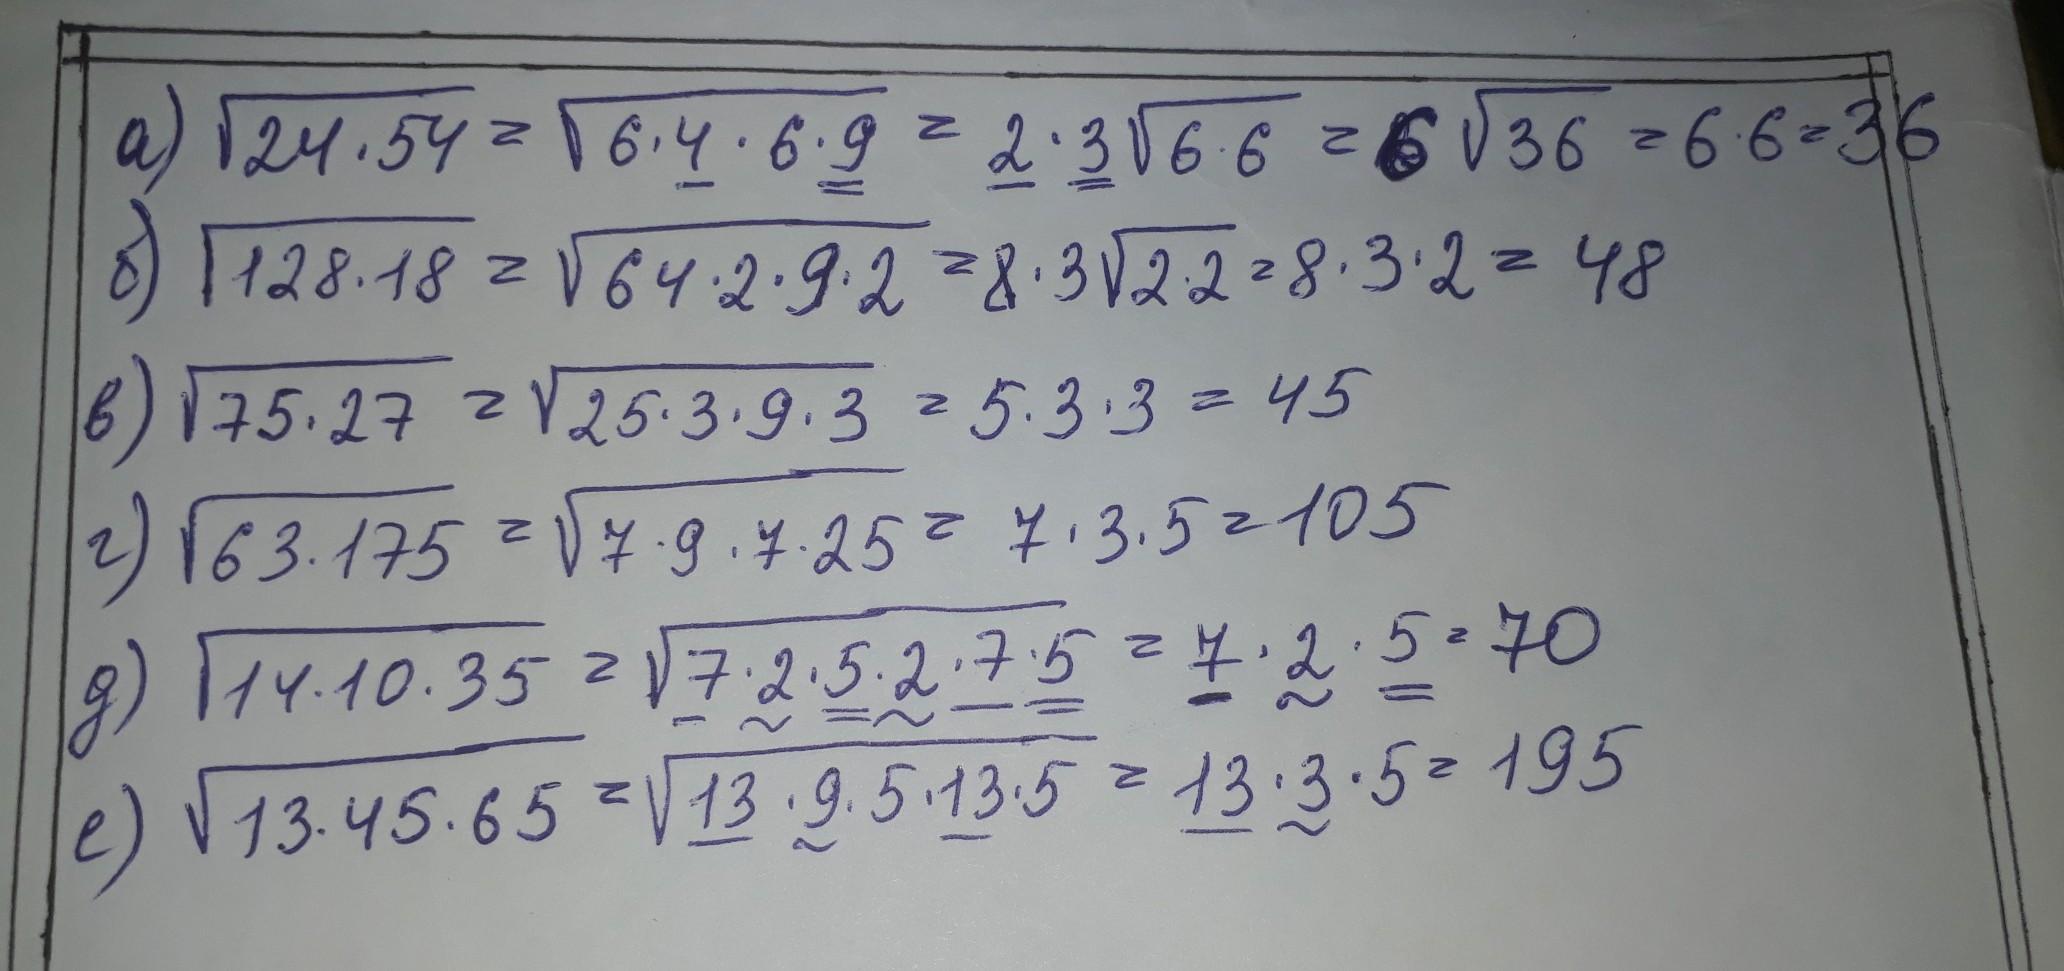 а) √24·54 = √6·4·6·9 = 2·3√6·6 = 6√36 = 6·6=36
б) √128·18 = √64·2·9·2 = 8·3√2·2 = 8·3·2 = 48
в) √75·27 = √25·3·9·3 = 5·3·3 = 45
г) √63·175 = √7·9·7·25 = 7·3·5 = 105
д) √14·10·35 = √7·2·5·2·7·5 = 7·2·5 = 70
е) √13·45·65 = √13·9·5·13·5 = 13·3·5 = 195